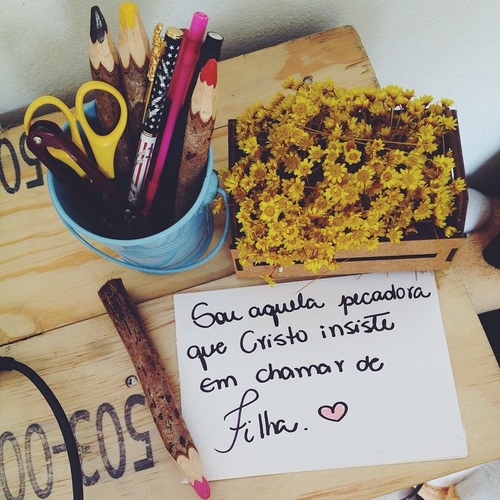 Sou aquela pecadora
que Cristo insiste
em chamar de
Filha.
503-00